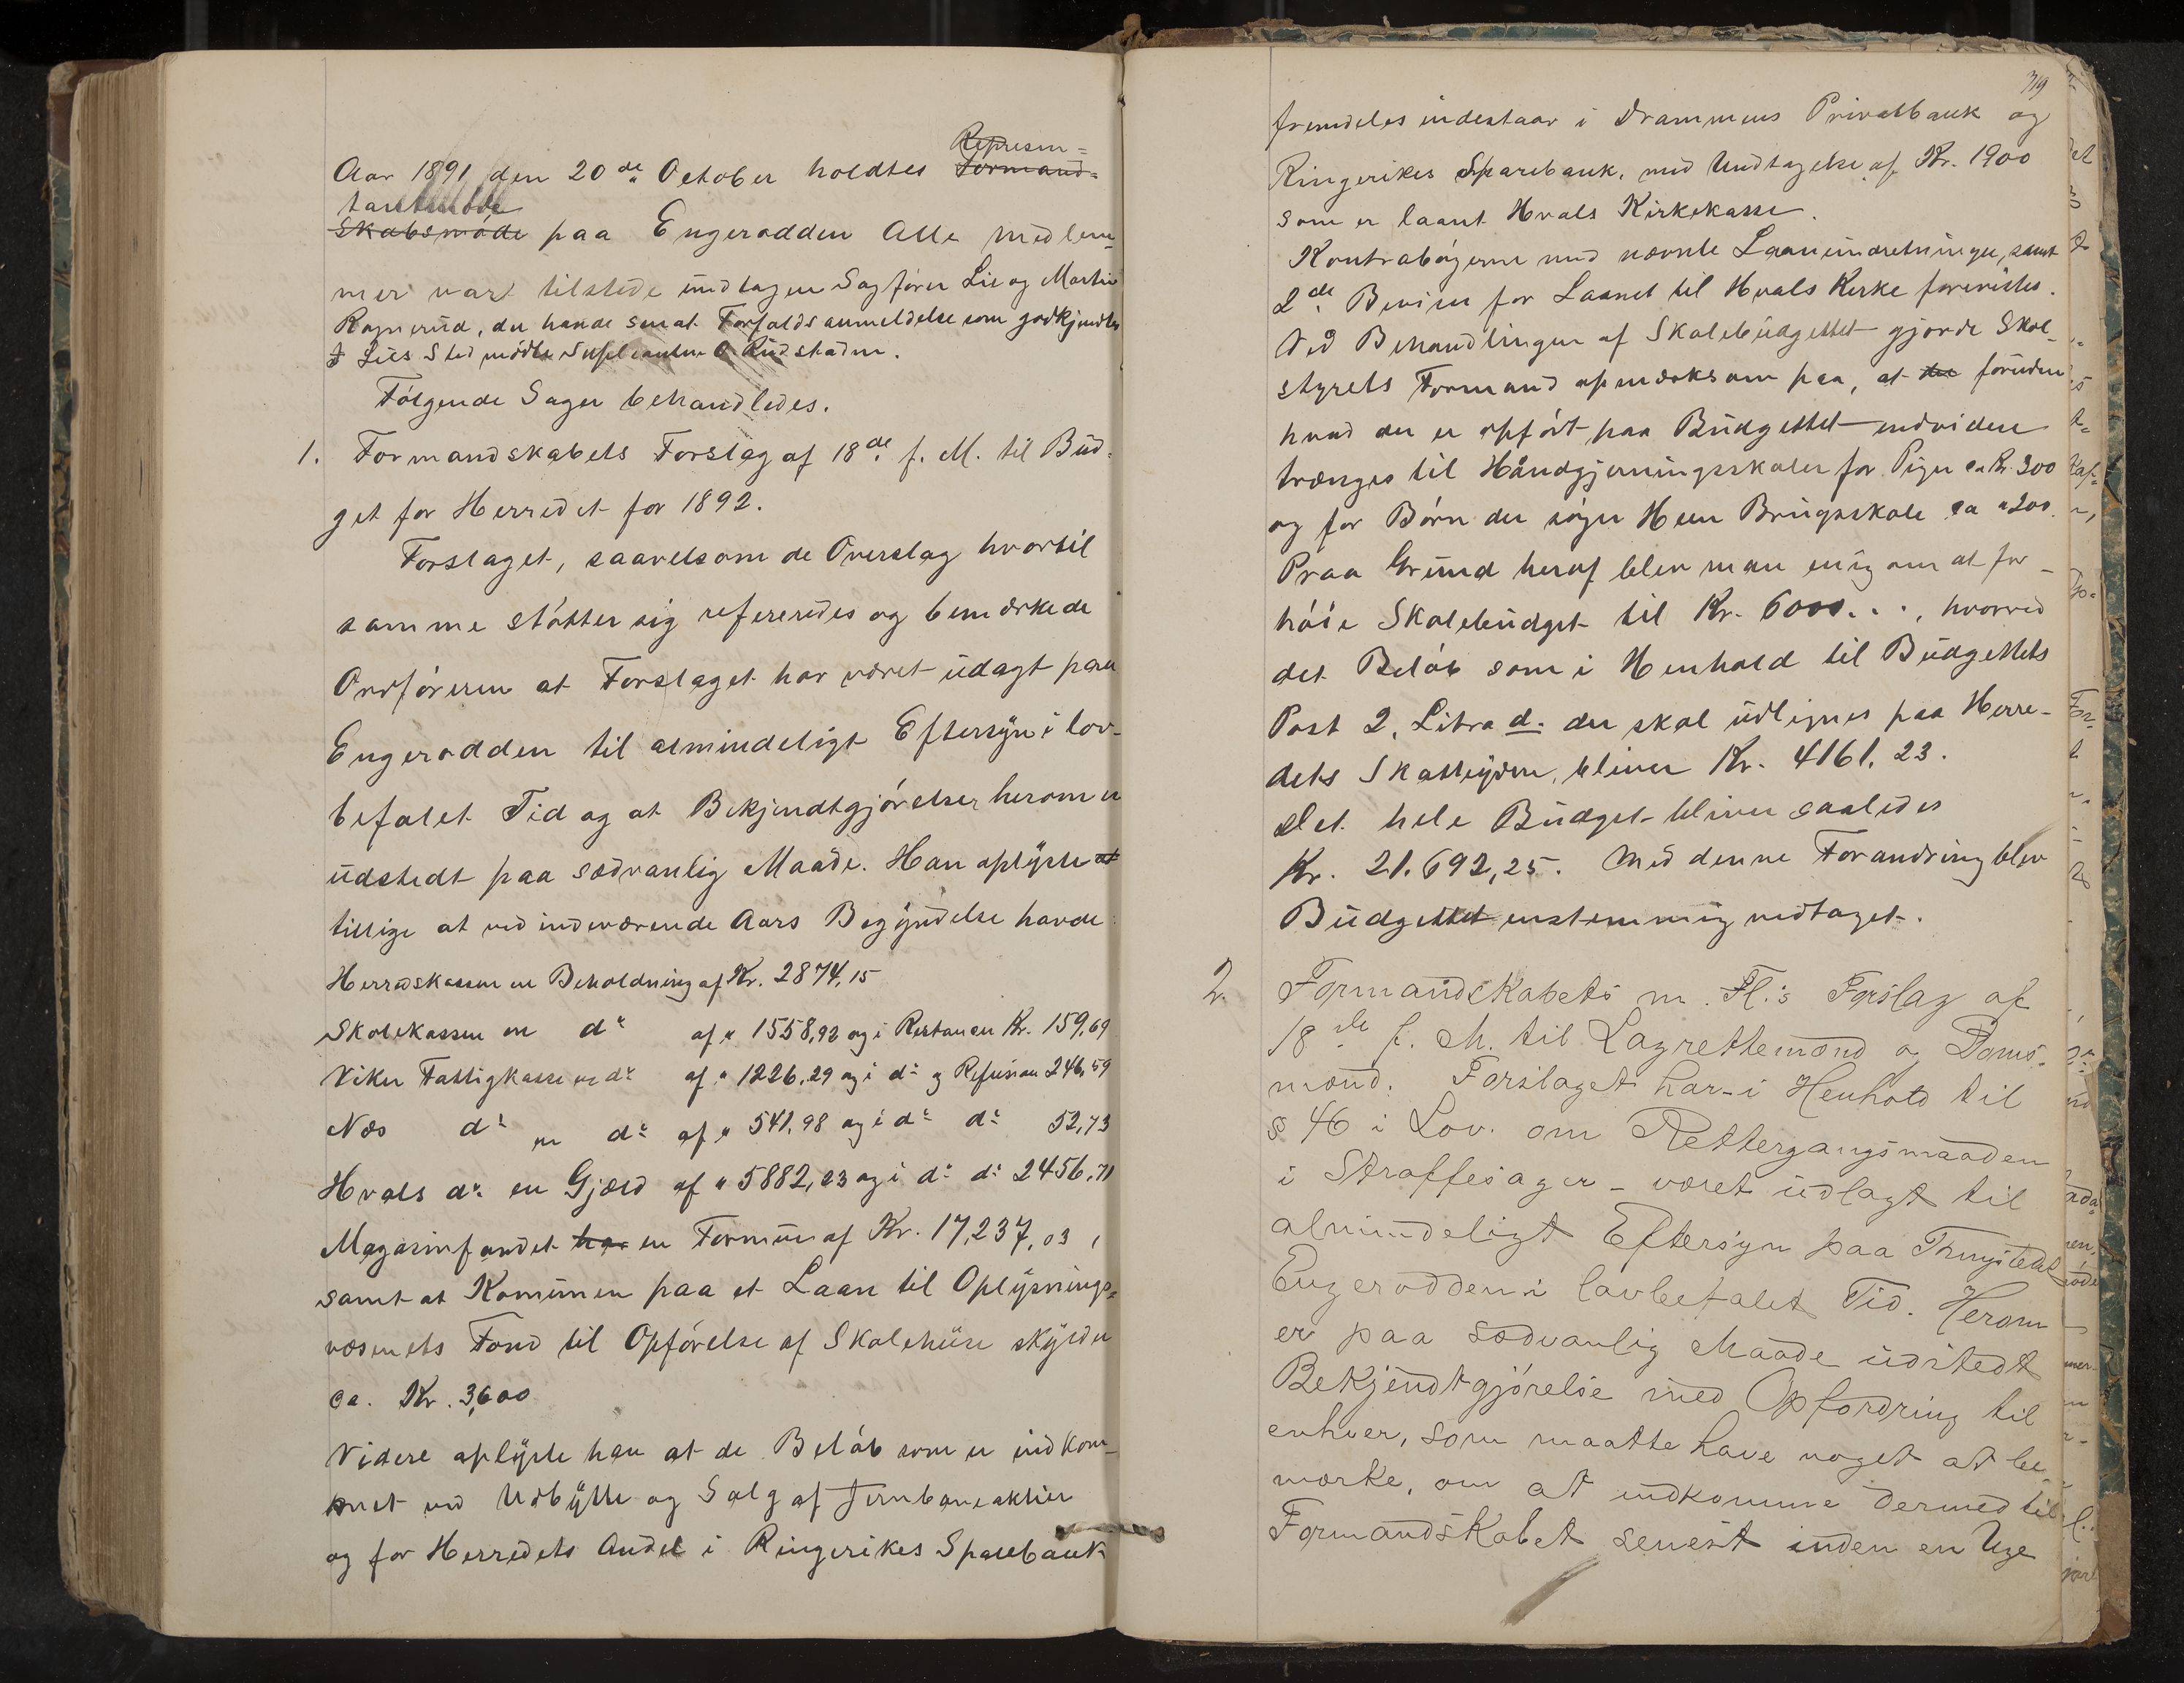 Represen=
Aar 1891 den 20de October holdtes Formand=
tantmøde
skabsmøde paa Engerodden Alle medlem=
mer var tilstede undtagen Sagfører Lie og Martin
Ragnerud, der havde sendt Forfaldsanmeldelse som godkjendtes
I Lies Sted mødte Supleanten O. Rudstaden.
Følgende Sager behandledes.
1. Formandskabets Forslag af 18de f. M. til Bud-
get for Herredet for 1892.
Forslaget, saavelsom de Overslag hvortil
samme støtter sig refereredes og bemærkede
Ordføreren at Forslaget har været udlagt paa
Engerodden til almindeligt Eftersyn i lov-
befalet Tid og at Bekjendtgjørelser herom er
udstedt paa sædvanlig Maade. Han oplyste at
tillige at ved indeværende Aars Begyndelse havde:
Herredskassen en Beholdning af Kr. 2874,15
Skolekassen en do af " 1558,92 og i Restancer Kr. 159,69
Viker Fattigkasse en do af " 1226,29 og i do og Refusion 246,59
Næs do en do af " 541,98 og i do do 52,73
Hvals do en Gjæld af " 5882,23 og i do do 2456,71
Magasinfondet har en Formue af Kr. 17,237,03,
samt at Komunen paa et Laan til Oplysnings=
væsenets Fond til Opførelse af Skolehuse skylder
ca. Kr. 3,600
Videre oplyste han at de Beløb som er indkom-
met ved Udbytte og Salg af Jernbaneaktier
og for Herredets Andel i Ringerikes Sparebank
319
fremdeles indestaar i Drammens Privatbank og
Ringerikes Sparebank, med Undtagelse af Kr. 1900
som er laant Hvals Kirkekasse.
Kontrabøgerne med nævnte Laaneindretninger, samt
2de Beviser for Laanet til Hvals Kirke forevistes.
Ved Behandlingen af Skolebudgettet gjorde Skol-
styrets Formand opmærksom paa, at der foruden
hvad der er opført paa Budgettet endvidere
trænges til Håndgjerningsskoler for Piger ca Kr. 300
og for Børn der søger Heen Brugsskole ca " 200.
Paa Grund heraf blev man enig om at for-
høie Skolebudget til Kr. 6000. . ., hvorved
det Beløb som i Henhold til Budgettets
Post 2, Litra d. der skal udlignes paa Herre-
dets Skatteydere, bliver Kr. 4161,23.
Det hele Budget bliver saaledes
Kr. 21.692,25. Med denne Forandring blev
Budgettet enstemmig vedtaget.
2. Formandskabets m. Fl.'s Forslag af
18de f. M. til Lagrettemænd og Doms-
mænd. Forslaget har - i Henhold til
§ 46 i Lov. om Rettergangsmaaden
i Straffesager - været udlagt til
almindeligt Eftersyn paa Thingstedet
Engerodden i lovbefalet Tid. Herom
er paa sædvanlig Maade udstedt
Bekjendtgjørelse med Opfordring til
enhver, som maatte have noget at be-
mærke, om at indkomme dermed til
Formandskabet senest inden en Uge